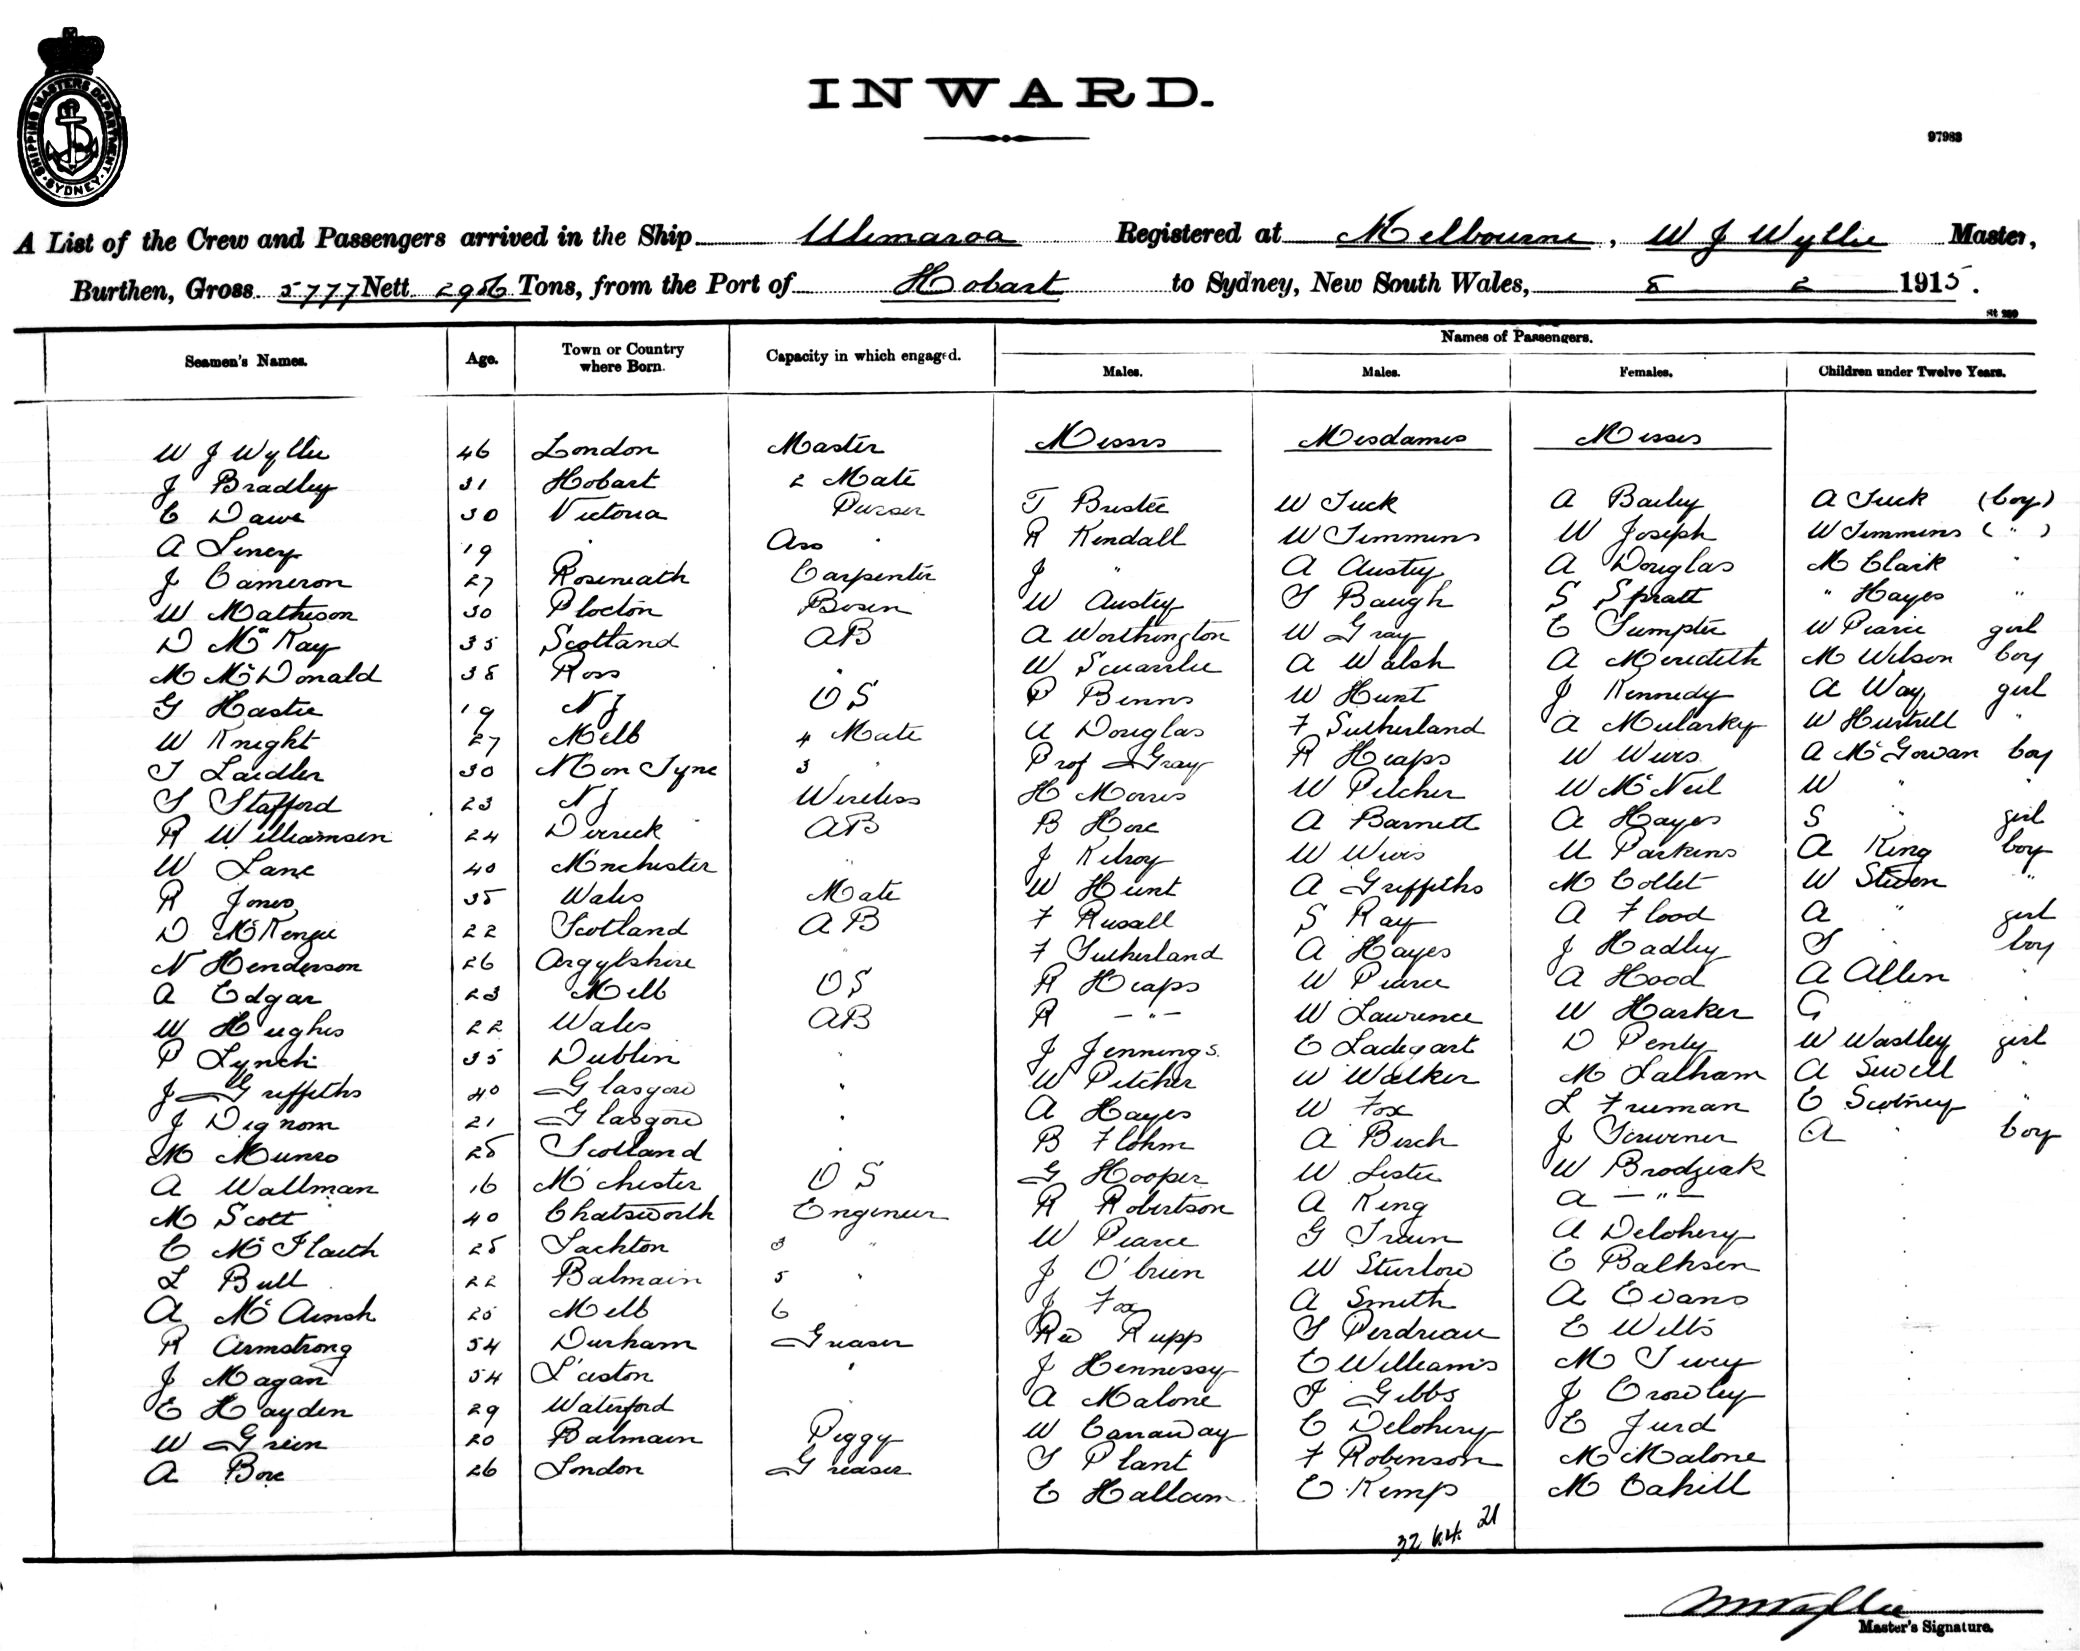 SHIPPING MASTERS DEPARTMENT
SYDNEY
INWARD.
97983
A List of the Crew and Passengers arrived in the Ship Ulimaroa Registered at Melbourne, W J Wyllie Master,
Burthen, Gross 5777 Nett Tons, from the Port of Hobart to Sydney, New South Wales, 8 2 1915.
Names of Passengers.
Seamen's Names. Age. Town or Country where Born. Capacity in which engaged. Males. Males. Females. Children under Twelve Years.
Messrs Mesdames Misses
W J Wyllie 46 London Master
J Bradley 31 Hobart 2 Mate
E Dawe 30 Victoria Purser T Bustee W Tuck A Bailey A Tuck (boy)
A Liney 19 " Ass " R Kendall W Timmins W Joseph W Timmins ( " )
J Cameron 27 Roseneath Carpenter J " A Austey A Douglas M Clark "
W Mathison 30 Plocton Bosen W Austey T Baugh S Spratt " Hayes "
D McKay 35 Scotland AB A Worthington W Gray E Sumpter W Pearce girl
M McDonald 38 Ross " W A Walsh A Meredith M Wilson boy
G Hastie 19 N Z OS P Benns W Hunt J Kennedy A Way girl
W Knight 27 Melb 4 Mate A Douglas F Sutherland A Mularky W "
T Laidler 30 N on Tyne 3 " Prof Gray R Heaps W Weirs A McGowan boy
T Stafford 23 N Z Wireless H Morris W Pitcher W McNeil W " "
R Williamson 24 AB B Hore A Barnett A Hayes S " girl
W Lane 40 M'nchester " J Kilroy W Weirs U Parkins A King boy
R Jones 35 Wales Mate W Hunt A Griffiths M Collet W Steven "
D McKenzie 22 Scotland AB F Rusall S Ray A Flood A " girl
N Henderson 26 Argylshire " F Sutherland A Hayes J Hadley T " boy
A Edgar 23 Melb OS R Heaps W Pearce A Hood A Allen "
W Hughes 22 Wales AB R " W Lawrence W Harker G " "
P Lynch 35 Dublin " J Jennings E Ladegart D Penly W Wastley girl
J Griffiths 40 Glasgow " W Pitcher W Walker M Latham A Sewell "
J Dignom 21 Glasgow " A Hayes W Fox L Freeman E Scotney "
M Munro 28 Scotland " B Flohm A Birch J Scrivener A " boy
A Wallman 16 M'chester OS G Hooper W Lester W Brodziak
M Scott 40 Chatsworth Engineer R Robertson A King A "
E 28 Lachton 3 " W Pearce G Train A Delohery
L Bull 22 Balmain 5 " J O'brien W Sturlow E Balhsen
A McAinsh 25 Melb 6 J Fox A Smith A Evans
R Armstrong 54 Durham Greaser Rev Rupp T Perdriau E Wells
J Magan 54 L'ceston " J Hennessy E Williams M Tivey
E Hayden 29 Waterford " A Malone J Gibbs J Crowley
W Green 20 Balmain Peggy W Canaway E Delohery E Jurd
A Bore 26 London Greaser T Plant F Robinson M Malone
E Hallam E Kemp M Cahill
32 64. 21
Master's Signature.